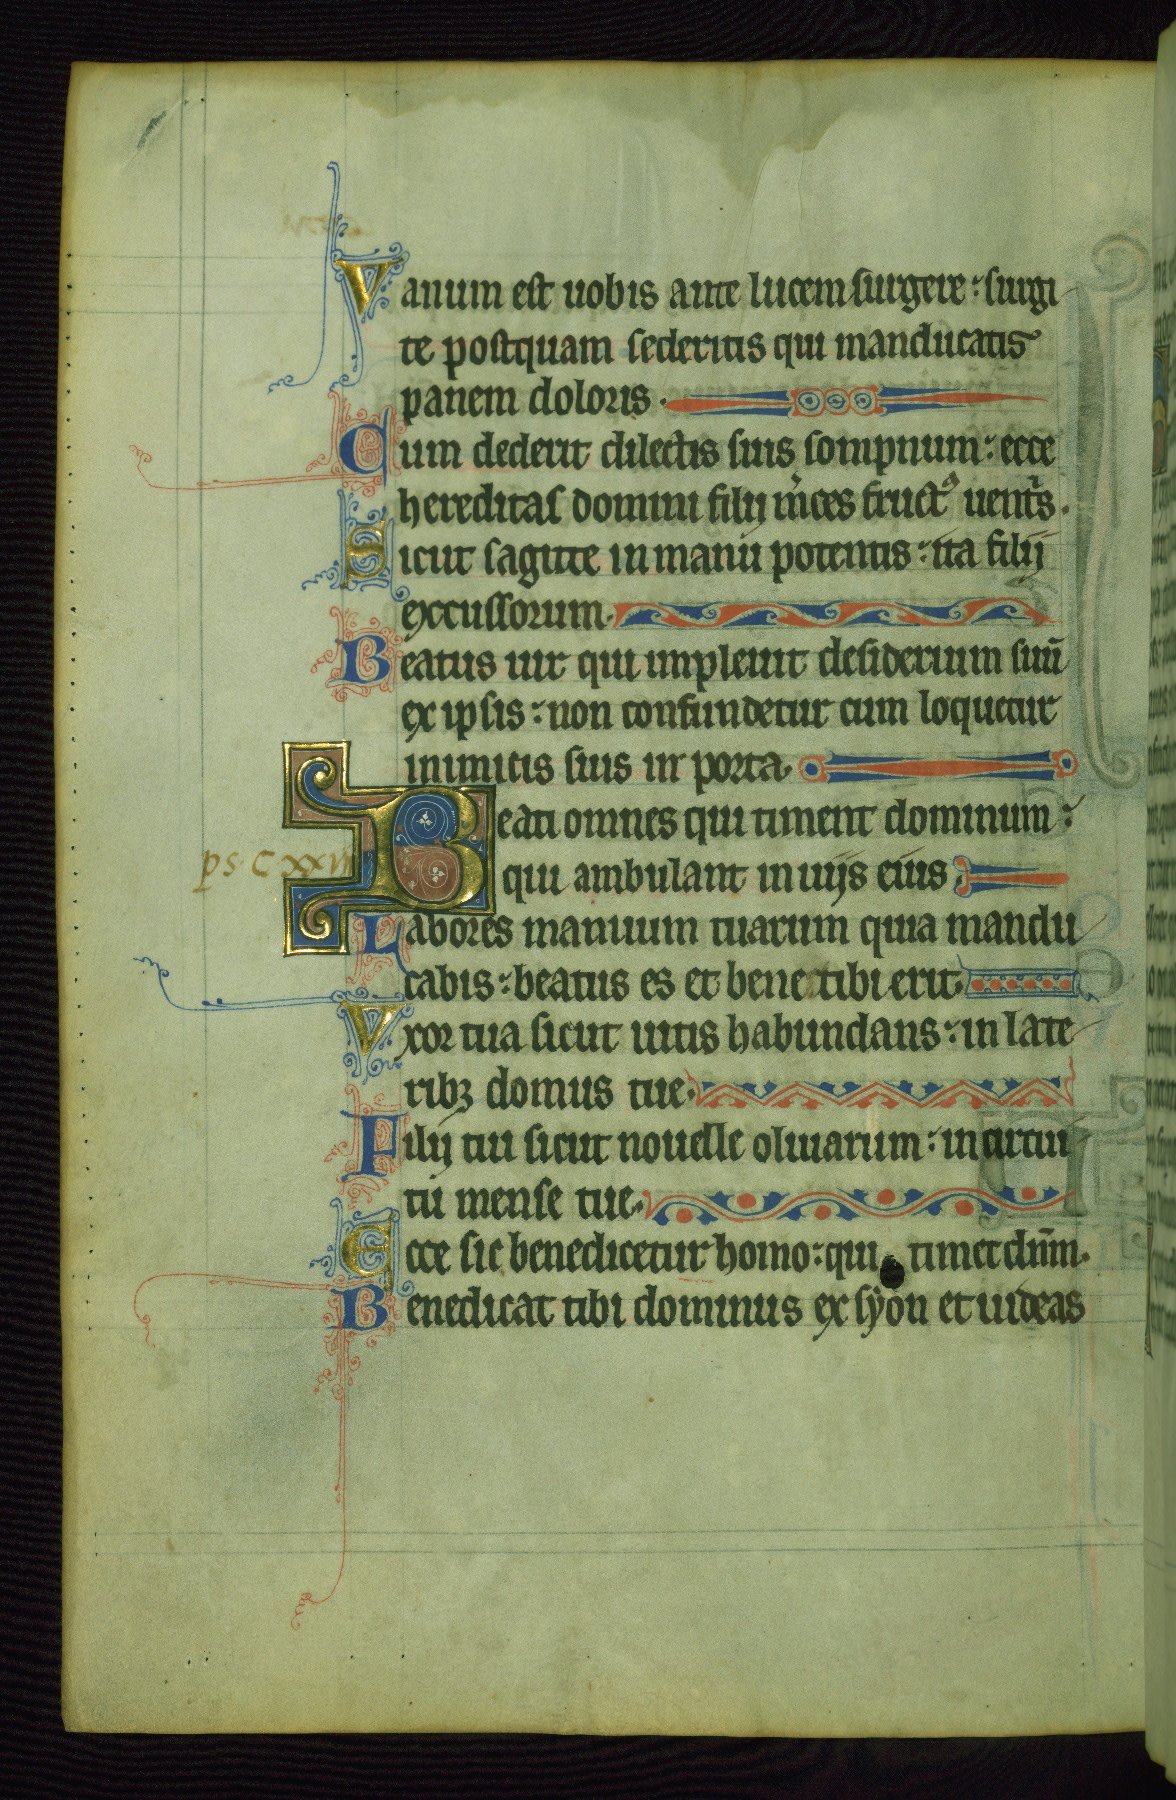 Vanum est uobis ante lucem surgere : surgi
te postquam sederitis qui manducatis
panem doloris .
Cum dederit dilectis suis sompnum : ecce
hereditas domini filij m̾ces fruct᷒ uent̾s .
Sicut sagitte in manu potentis : ita filij
excussorum .
Beatus uir qui impleuit desiderium suū
ex ipsis : non confundetur cum loquetur
inimicis suis in porta .
Beati omnes qui timent dominum :
qui ambulant in uijs eius .
ps CXXVII
Labores manuum tuarum quia mandu
cabis : beatus es et bene tibi erit .
Vxor tua sicut uitis habundans : in late
ribꝫ domus tue .
Filij tui sicut nouelle oliuarum : in circui
tu mense tue .
Ecce sic benedicetur homo : qui timet dn̄m .
Benedicat tibi dominus ex syon et uideas